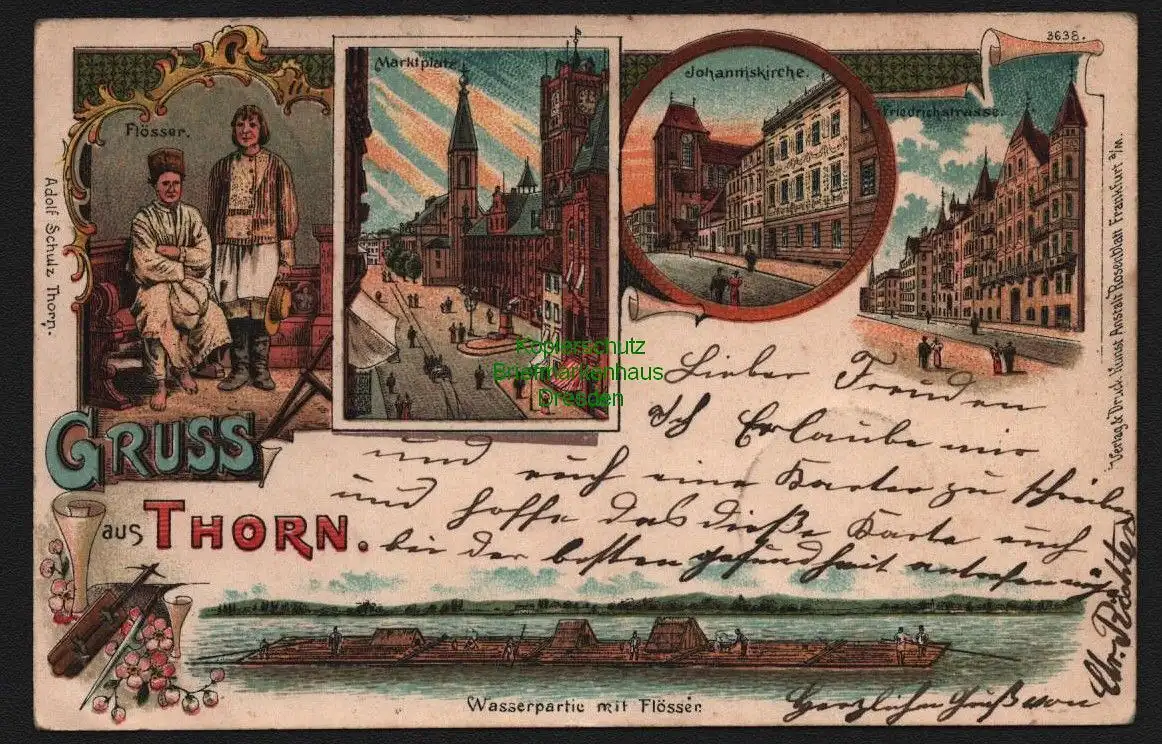 3638.
Flösser.
Marktplatz.
Johanniskirche.
Friedrichstrasse.
Adolf Schulz Thorn.
Verlag & Druck Kunst Anstalt Rosenblatt Frankfurt a/M.
Kopierschutz
Briefmarkenhaus
Dresden
GRUSS
aus THORN.
Lieber Freuden
Ich Erlaube mir
und euch eine Karte zu schreiben
und hoffe das dieße Karte euch
bei der besten gesundheit
Wasserpartie mit Flösser.
Herzlichen Gruß von